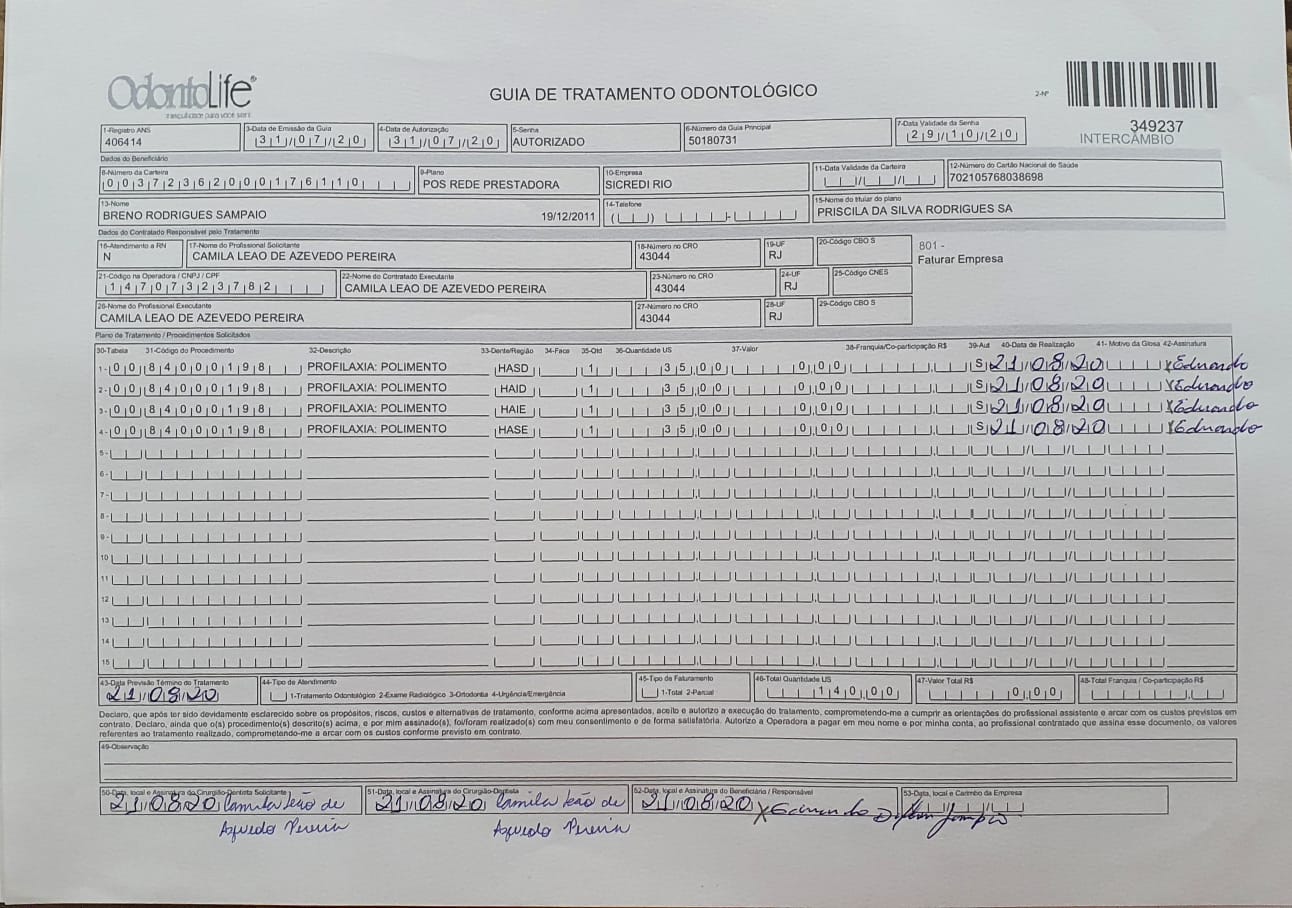 OdontoLife®
GUIA DE TRATAMENTO ODONTOLÓGICO
2-Nº
349237
INTERCÂMBIO
1-Registro ANS
406414
3-Data de Emissão da Guia
31/07/20
4-Data de Autorização
31/07/20
5-Senha
AUTORIZADO
6-Número da Guia Principal
50180731
7-Data Validade da Senha
29/10/20
Dados do Beneficiário
8-Número da Carteira
00372362000176110
9-Plano
POS REDE PRESTADORA
10-Empresa
SICREDI RIO
11-Data Validade da Carteira
12-Número do Cartão Nacional de Saúde
702105768038698
13-Nome
BRENO RODRIGUES SAMPAIO 19/12/2011
14-Telefone
15-Nome do titular do plano
PRISCILA DA SILVA RODRIGUES SA
Dados do Contratado Responsável pelo Tratamento
16-Atendimento a RN
N
17-Nome do Profissional Solicitante
CAMILA LEAO DE AZEVEDO PEREIRA
18-Número no CRO
43044
19-UF
RJ
20-Código CBO S
801 -
Faturar Empresa
21-Código na Operadora / CNPJ / CPF
14707323782
22-Nome do Contratado Executante
CAMILA LEAO DE AZEVEDO PEREIRA
23-Número no CRO
43044
24-UF
RJ
25-Código CNES
26-Nome do Profissional Executante
CAMILA LEAO DE AZEVEDO PEREIRA
27-Número no CRO
43044
28-UF
RJ
29-Código CBO S
Plano de Tratamento / Procedimentos Solicitados
30-Tabela 31-Código do Procedimento 32-Descrição 33-Dente/Região 34-Face 35-Qtd 36-Quantidade US 37-Valor 38-Franquia/Co-participação R$ 39-Aut 40-Data de Realização 41- Motivo da Glosa 42-Assinatura
1- 00 84000198 PROFILAXIA: POLIMENTO HASD 1 35,00 0,00 S 21/08/20 x Eduardo
2- 00 84000198 PROFILAXIA: POLIMENTO HAID 1 35,00 0,00 S 21/08/20 x Eduardo
3- 00 84000198 PROFILAXIA: POLIMENTO HAIE 1 35,00 0,00 S 21/08/20 x Eduardo
4- 00 84000198 PROFILAXIA: POLIMENTO HASE 1 35,00 0,00 S 21/08/20 x Eduardo
5-
6-
7-
8-
9-
10
11
12
13
14
15
43-Data Previsão Término do Tratamento
21/08/20
44-Tipo de Atendimento
1-Tratamento Odontológico 2-Exame Radiológico 3-Ortodontia 4-Urgência/Emergência
45-Tipo de Faturamento
1-Total 2-Parcial
46-Total Quantidade US
140,00
47-Valor Total R$
0,00
48-Total Franquia / Co-participação R$
Declaro, que após ter sido devidamente esclarecido sobre os propósitos, riscos, custos e alternativas de tratamento, conforme acima apresentados, aceito e autorizo a execução do tratamento, comprometendo-me a cumprir as orientações do profissional assistente e arcar com os custos previstos em
contrato. Declaro, ainda que o(s) procedimento(s) descrito(s) acima, e por mim assinado(s), foi/foram realizado(s) com meu consentimento e de forma satisfatória. Autorizo a Operadora a pagar em meu nome e por minha conta, ao profissional contratado que assina esse documento, os valores
referentes ao tratamento realizado, comprometendo-me a arcar com os custos conforme previsto em contrato.
49-Observação
50-Data, local e Assinatura do Cirurgião-Dentista Solicitante
21/08/20 Camila Leão de
Azevedo Pereira
51-Data, local e Assinatura do Cirurgião-Dentista
21/08/20 Camila Leão de
Azevedo Pereira
52-Data, local e Assinatura do Beneficiário / Responsável
21/08/20 x Eduardo
53-Data, local e Carimbo da Empresa